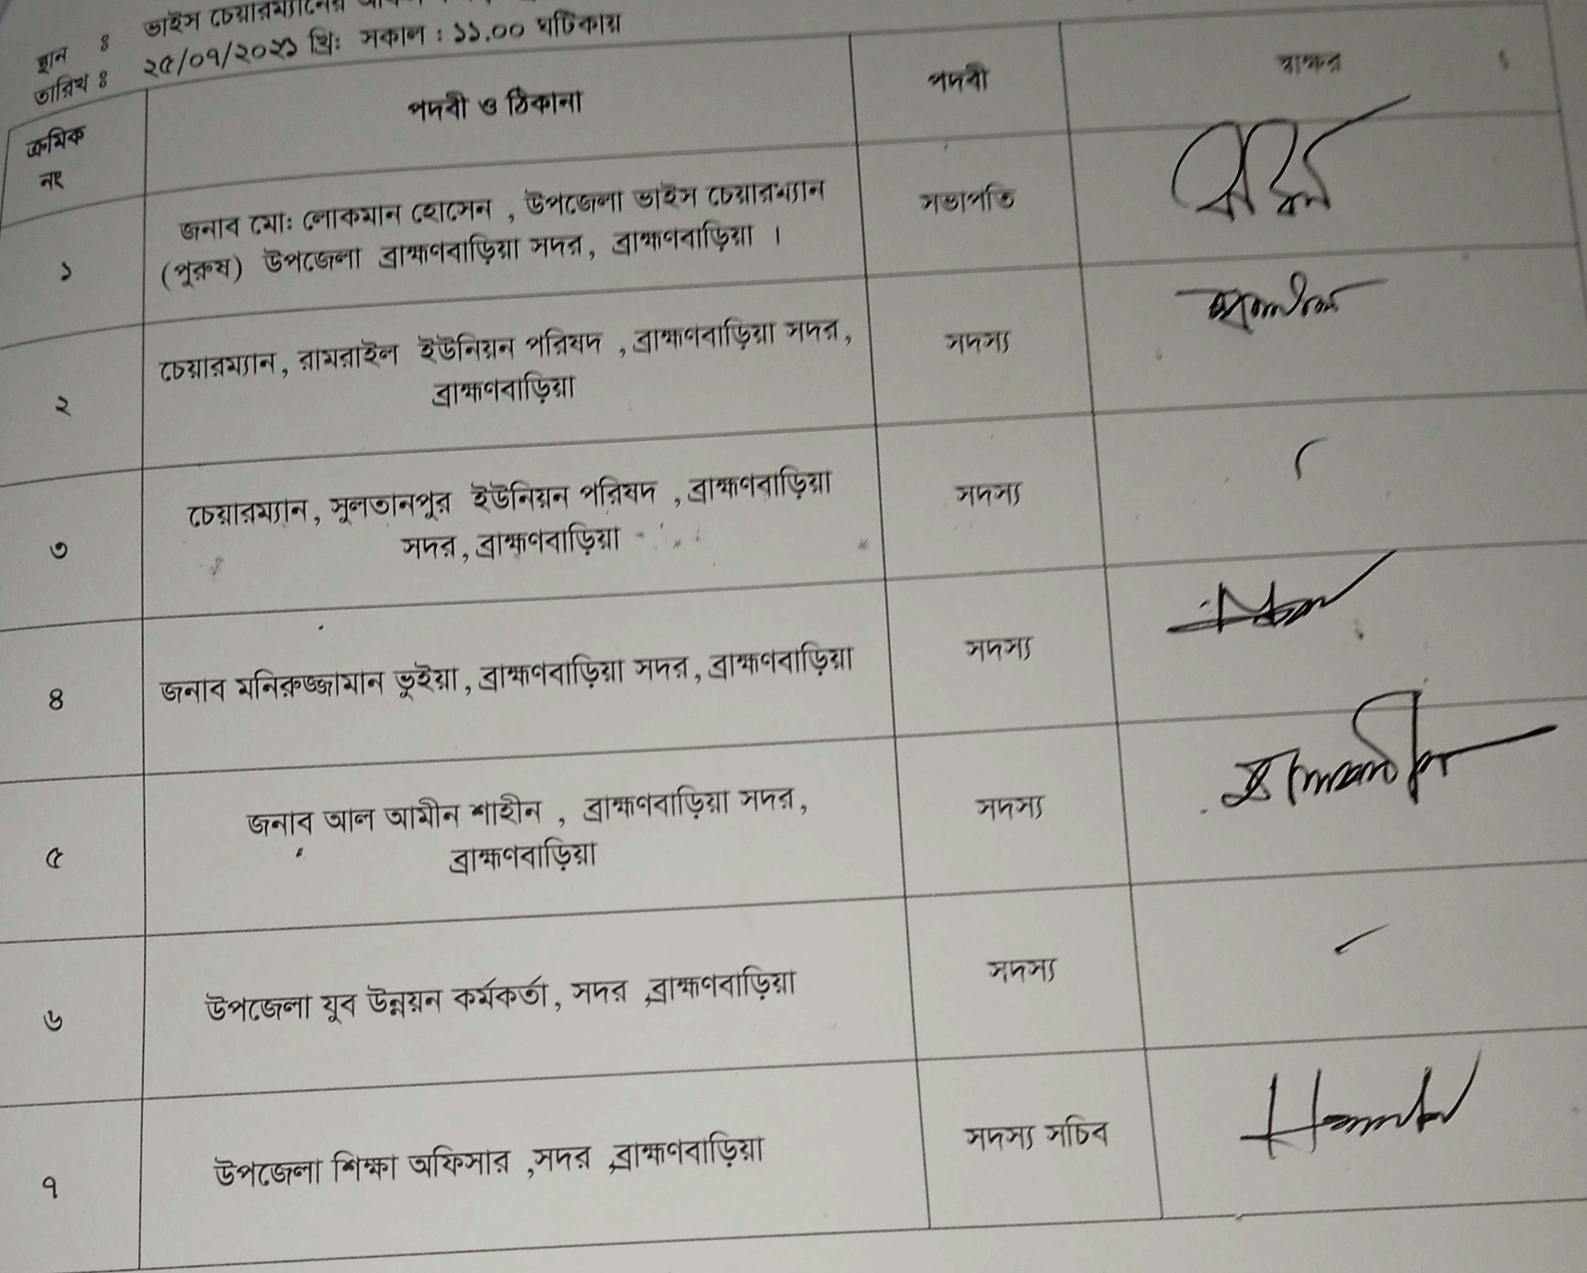 স্থান ঃ ভাইস চেয়ারম্যানের
তারিখ ঃ ২৫/০৭/২০২১ খ্রিঃ সকাল : ১১.০০ ঘটিকায়
ক্রমিক নং পদবী ও ঠিকানা পদবী স্বাক্ষর
১ জনাব মো: লোকমান হোসেন , উপজেলা ভাইস চেয়ারম্যান সভাপতি
(পুরুষ) উপজেলা ব্রাহ্মণবাড়িয়া সদর, ব্রাহ্মণবাড়িয়া ।
২ চেয়ারম্যান, রামরাইল ইউনিয়ন পরিষদ , ব্রাহ্মণবাড়িয়া সদর, সদস্য
ব্রাহ্মণবাড়িয়া
৩ চেয়ারম্যান, সুলতানপুর ইউনিয়ন পরিষদ , ব্রাহ্মণবাড়িয়া সদস্য
সদর, ব্রাহ্মণবাড়িয়া
৪ জনাব মনিরুজ্জামান ভুইয়া, ব্রাহ্মণবাড়িয়া সদর, ব্রাহ্মণবাড়িয়া সদস্য
৫ জনাব আল আমীন শাহীন , ব্রাহ্মণবাড়িয়া সদর, সদস্য
ব্রাহ্মণবাড়িয়া
৬ উপজেলা যুব উন্নয়ন কর্মকর্তা, সদর ,ব্রাহ্মণবাড়িয়া সদস্য
৭ উপজেলা শিক্ষা অফিসার ,সদর ,ব্রাহ্মণবাড়িয়া সদস্য সচিব